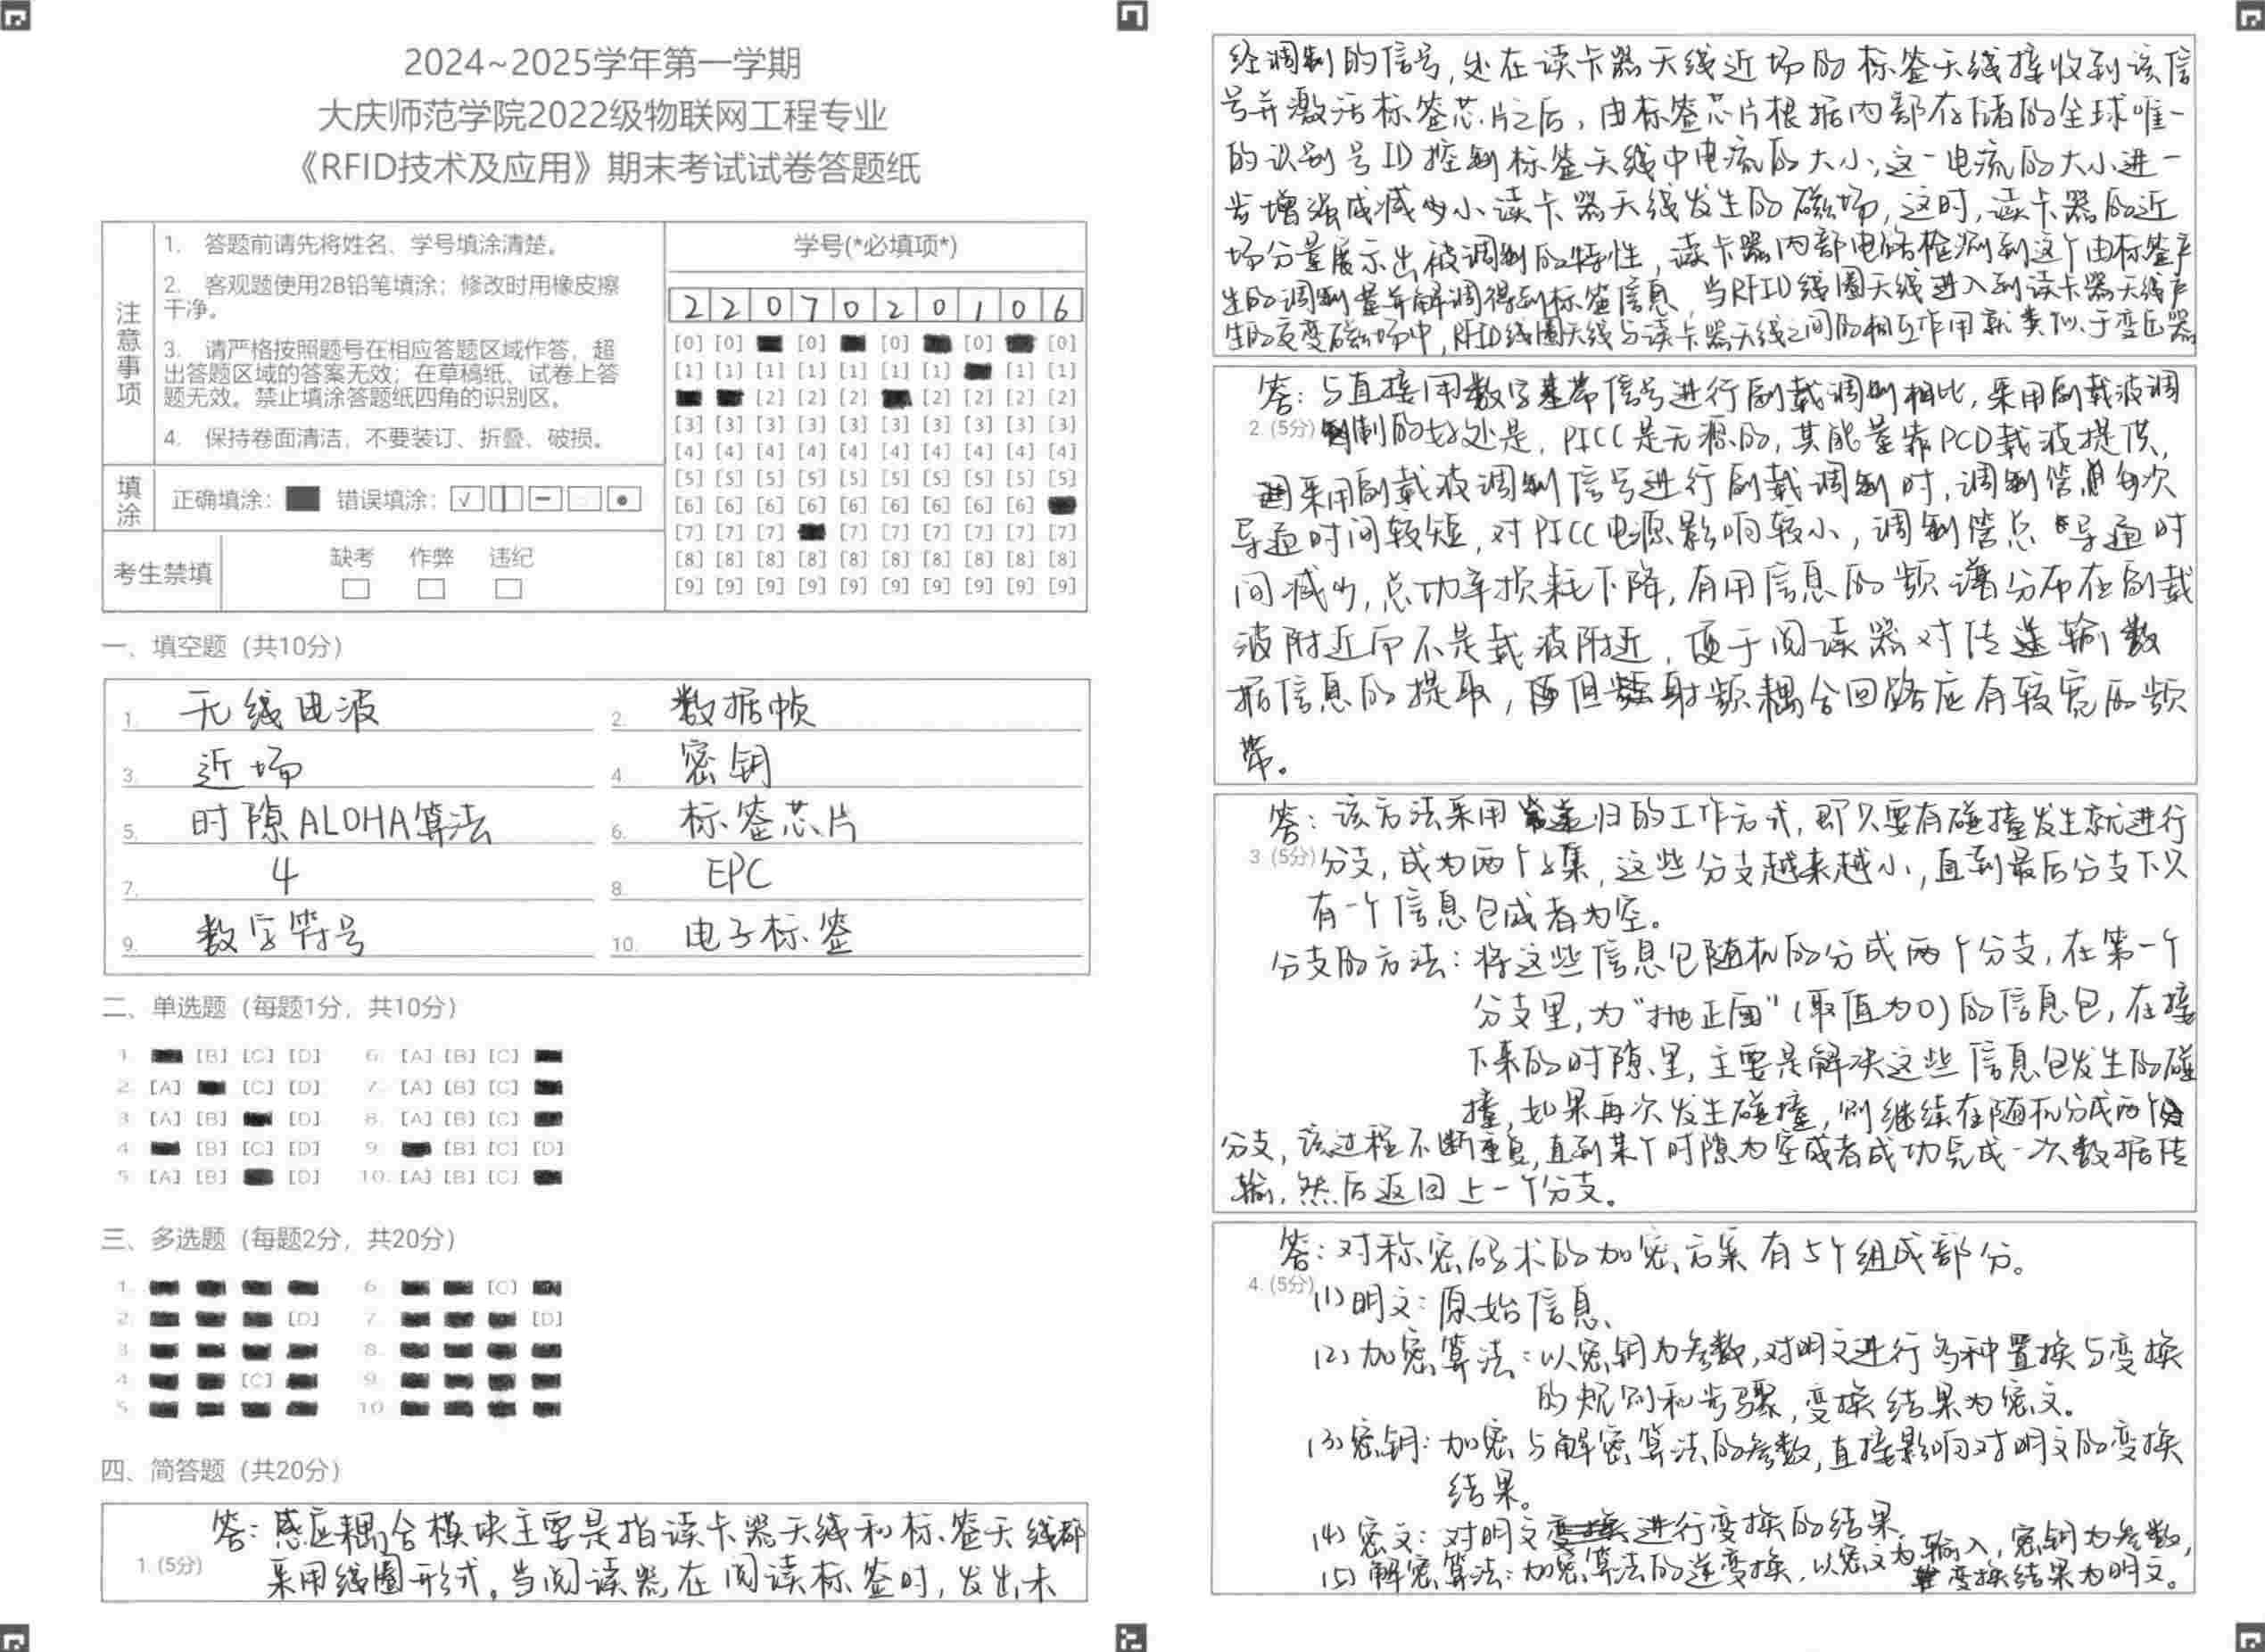 2024~2025学年第一学期
大庆师范学院2022级物联网工程专业
《RFID技术及应用》期末考试试卷答题纸
注意事项
1. 答题前请先将姓名、学号填涂清楚。
2. 客观题使用2B铅笔填涂；修改时用橡皮擦
干净。
3. 请严格按照题号在相应答题区域作答，超
出答题区域的答案无效；在草稿纸、试卷上答
题无效。禁止填涂答题纸四角的识别区。
4. 保持卷面清洁，不要装订、折叠、破损。
填涂
正确填涂： 错误填涂：
考生禁填
缺考 作弊 违纪
学号(*必填项*)
2 2 0 7 0 2 0 1 0 6
[0] [0] [0] [0] [0] [0]
[1] [1] [1] [1] [1] [1] [1] [1] [1]
[2] [2] [2] [2] [2] [2] [2]
[3] [3] [3] [3] [3] [3] [3] [3] [3] [3]
[4] [4] [4] [4] [4] [4] [4] [4] [4] [4]
[5] [5] [5] [5] [5] [5] [5] [5] [5] [5]
[6] [6] [6] [6] [6] [6] [6] [6] [6]
[7] [7] [7] [7] [7] [7] [7] [7] [7]
[8] [8] [8] [8] [8] [8] [8] [8] [8] [8]
[9] [9] [9] [9] [9] [9] [9] [9] [9] [9]
一、填空题（共10分）
1. 无线电波 2. 数据帧
3. 近场 4. 密钥
5. 时隙ALOHA算法 6. 标签芯片
7. 4 8. EPC
9. 数字符号 10. 电子标签
二、单选题（每题1分，共10分）
1. [B] [C] [D] 6. [A] [B] [C]
2. [A] [C] [D] 7. [A] [B] [C]
3. [A] [B] [D] 8. [A] [B] [C]
4. [B] [C] [D] 9. [B] [C] [D]
5. [A] [B] [D] 10. [A] [B] [C]
三、多选题（每题2分，共20分）
1. 6. [C]
2. [D] 7. [D]
3. 8.
4. [C] 9.
5. 10.
四、简答题（共20分）
答：感应耦合模块主要是指读卡器天线和标签天线都
1. (5分) 采用线圈形式。当阅读器在阅读标签时，发出未
经调制的信号，处在读卡器天线近场的标签天线接收到该信
号并激活标签芯片之后，由标签芯片根据内部存储的全球唯一
的识别号ID控制标签天线中电流的大小，这一电流的大小进一
步增强或减少小读卡器天线发生的磁场，这时，读卡器的近
场分量展示出被调制的特性，读卡器内部电路检测到这个由标签产
生的调制量并解调得到标签信息，当RFID线圈天线进入到读卡器天线产
生的交变磁场中，RFID线圈天线与读卡器天线之间的相互作用就类似于变压器
答：与直接用数字基带信号进行副载调制相比，采用副载波调
2. (5分) 制的好处是，PICC是无源的，其能量靠PCD载波提供，
采用副载波调制信号进行副载调制时，调制管每次
导通时间较短，对PICC电源影响较小，调制管总导通时
间减少，总功率损耗下降，有用信息的频谱分布在副载
波附近而不是载波附近，便于阅读器对传输数
据信息的提取，但射频耦合回路应有较宽的频
带。
答：该方法采用递归的工作方式，即只要有碰撞发生就进行
3. (5分) 分支，成为两个子集，这些分支越来越小，直到最后分支下只
有一个信息包或者为空。
分支的方法：将这些信息包随机的分成两个分支，在第一个
分支里，为“抛正面”(取值为0)的信息包，在接
下来的时隙里，主要是解决这些信息包发生的碰
撞，如果再次发生碰撞，则继续在随机分成两个
分支，该过程不断重复，直到某个时隙为空或者成功完成一次数据传
输，然后返回上一个分支。
答：对称密码术的加密方案有5个组成部分。
4. (5分) (1) 明文：原始信息、
(2) 加密算法：以密钥为参数，对明文进行多种置换与变换
的规则和步骤，变换结果为密文。
(3) 密钥：加密与解密算法的参数，直接影响对明文的变换
结果。
(4) 密文：对明文进行变换的结果
(5) 解密算法：加密算法的逆变换，以密文为输入，密钥为参数，
变换结果为明文。